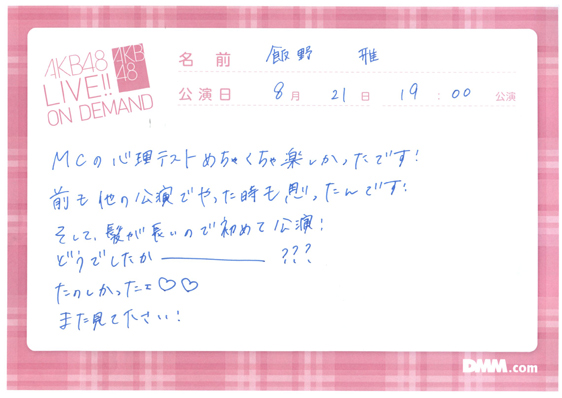 AKB48
LIVE!!
ON DEMAND
AKB
48
名前 飯野 雅
公演日 8月 21日 19:00 公演
MCの心理テストめちゃくちゃ楽しかったです!
前も他の公演でやった時も思ったんです!
そして、髪が長いので初めて公演!
どうでしたか――――???
たのしかったェ♡♡
また見て下さい!
DMM.com